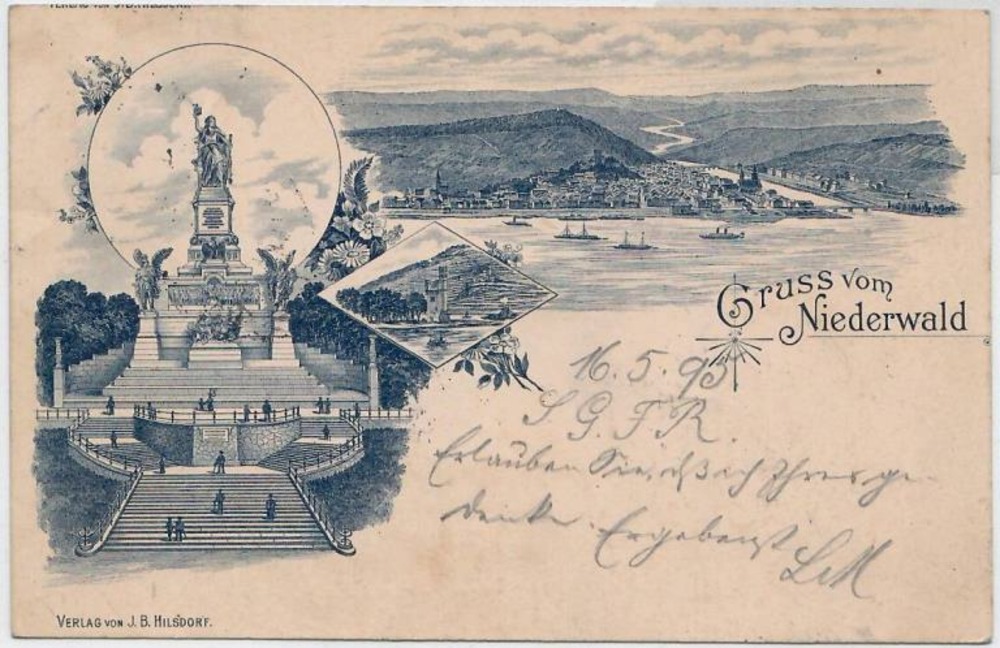 Gruss vom
Niederwald
16.5.95
S G F R.
Erlauben Sie, daß ich Ihrer ge-
denke. Ergebenst
LM
VERLAG VON J. B. HILSDORF.